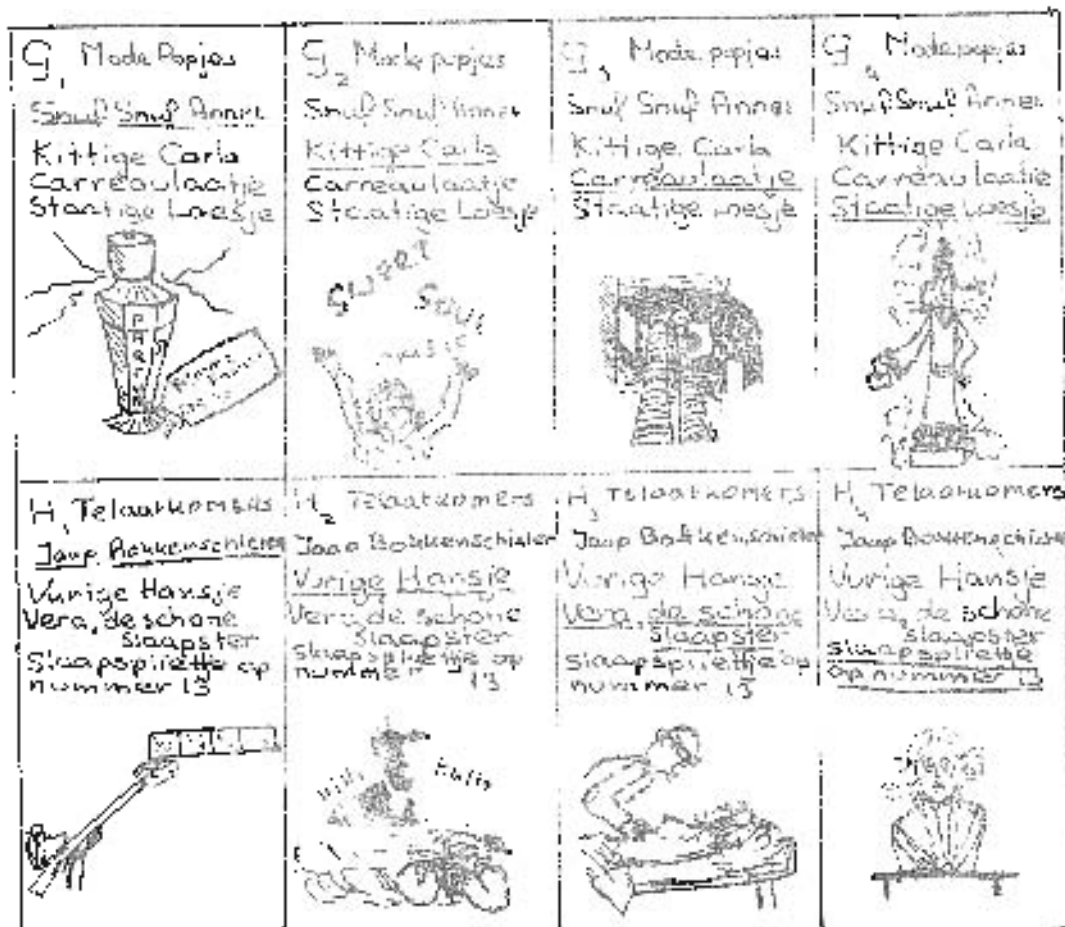 G1 Mode Popjes
Snuf Snuf Annet
Kittige Carla
Carreaulaatje
Staatige Loesje
PARFUM
G2 Mode popjes
Snuf Snuf Annet
Kittige Carla
Carreaulaatje
Staatige Loesje
SWEET
SOUL
MUSIC
G3 Mode popjes
Snuf Snuf Annet
Kittige Carla
Carreaulaatje
Staatige Loesje
G4 Mode popjes
Snuf Snuf Annet
Kittige Carla
Carreaulaatje
Staatige Loesje
H1 Telaatkomers
Jaap Bokkenschieter
Vurige Hansje
Vera, de schone
slaapster
Slaapspriettje op
nummer 13
H2 Telaatkomers
Jaap Bokkenschieter
Vurige Hansje
Vera, de schone
slaapster
slaapspriettje op
nummer 13
H3 Telaatkomers
Jaap Bokkenschieter
Vurige Hansje
Vera, de schone
slaapster
slaapspriettje op
nummer 13
H4 Telaatkomers
Jaap Bokkenschieter
Vurige Hansje
Vera, de schone
slaapster
slaapspriettje
op nummer 13